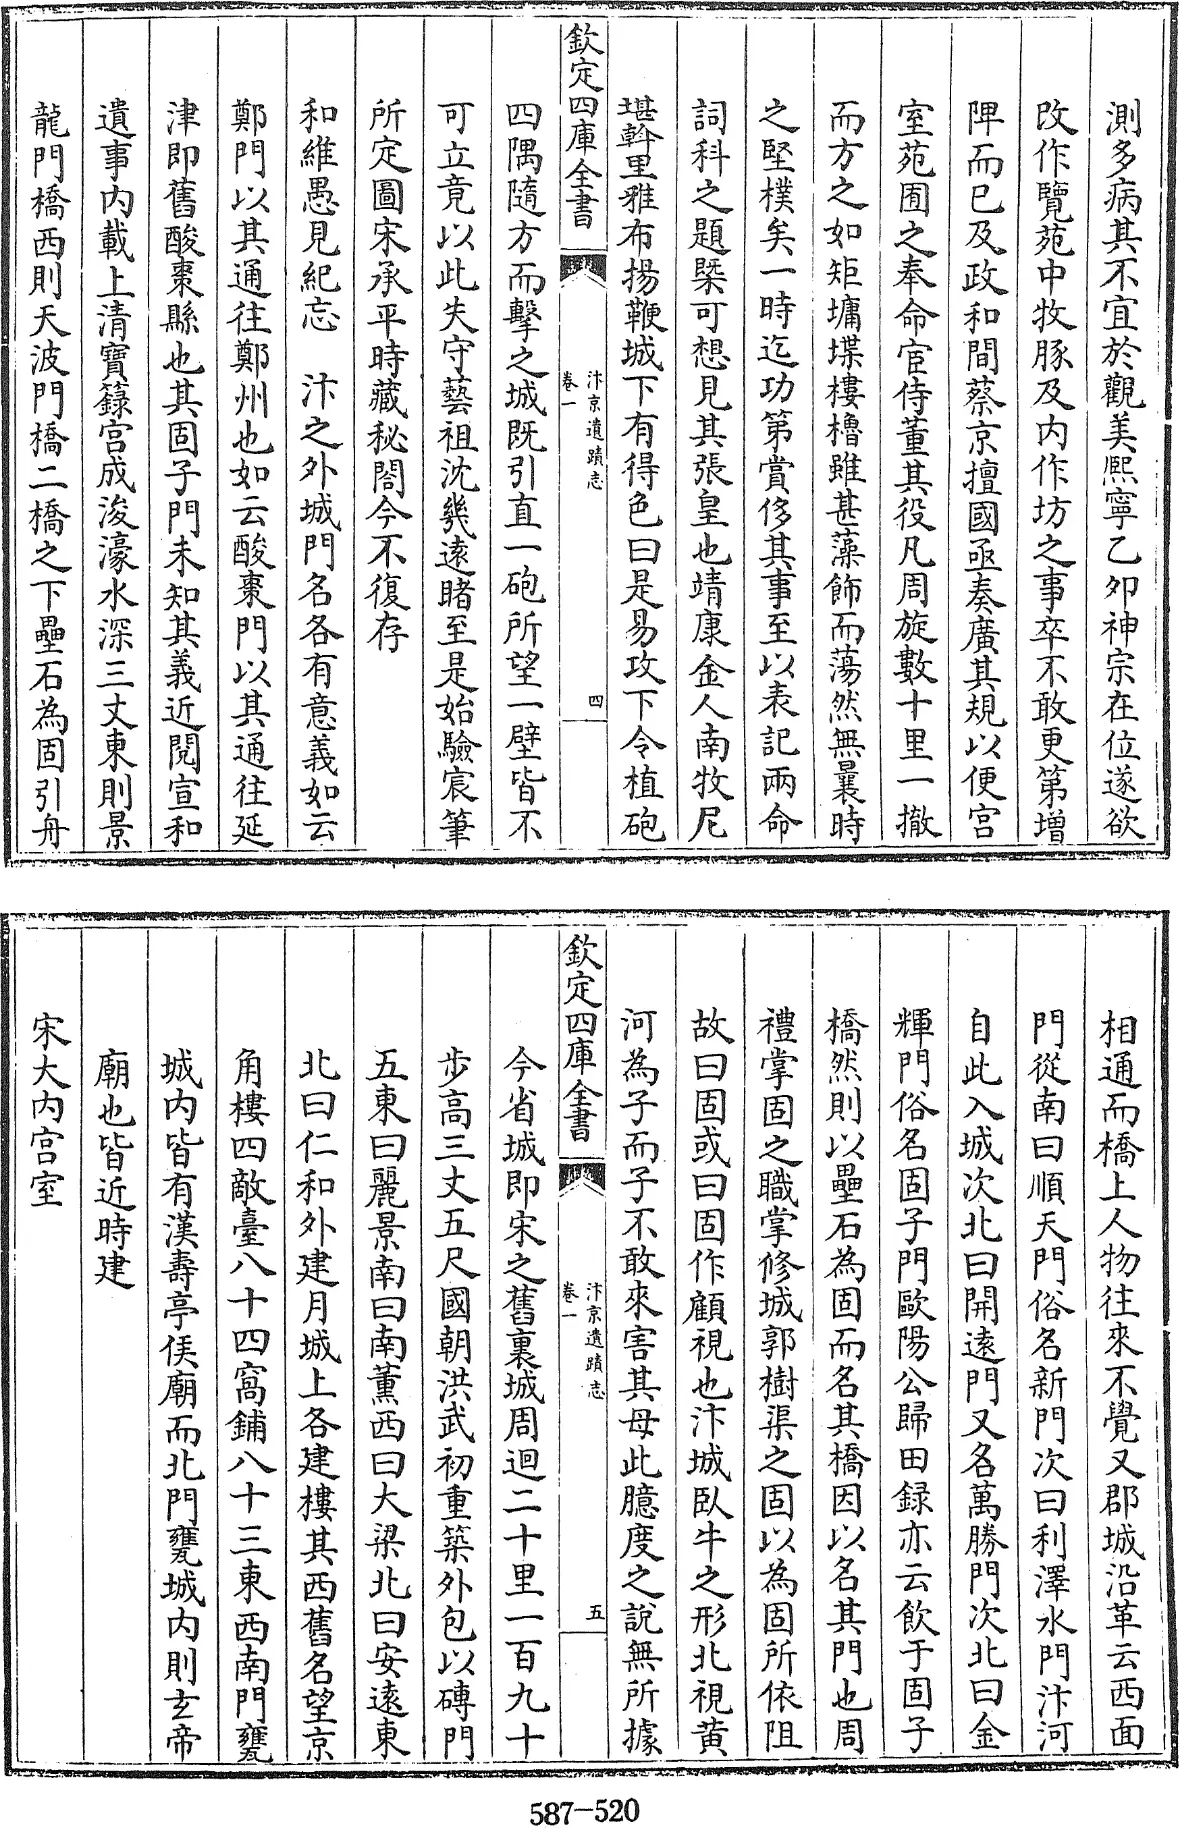 測多病其不宜於觀美熙寧乙夘神宗在位遂欲
改作覽苑中牧豚及内作坊之事卒不敢更第增
陴而已及政和間蔡京擅國亟奏廣其規以便宫
室苑囿之奉命宦侍董其役凡周旋數十里一撤
而方之如矩墉堞樓櫓雖甚藻飾而蕩然無曩時
之堅樸矣一時迄功第賞侈其事至以表記兩命
詞科之題槩可想見其張皇也靖康金人南牧尼
堪斡里雅布揚鞭城下有得色曰是易攻下令植砲
欽定四庫全書
汴京遺蹟志
卷一
四
四隅隨方而擊之城既引直一砲所望一壁皆不
可立竟以此失守藝祖沈幾遠睹至是始驗宸筆
所定圖宋承平時藏秘閣今不復存
和維愚見紀忘 汴之外城門名各有意義如云
鄭門以其通往鄭州也如云酸棗門以其通往延
津即舊酸棗縣也其固子門未知其義近閲宣和
遺事内載上清寶籙宫成浚濠水深三丈東則景
龍門橋西則天波門橋二橋之下壘石為固引舟
相通而橋上人物往來不覺又郡城沿革云西面
門從南曰順天門俗名新門次曰利澤水門汴河
自此入城次北曰開逺門又名萬勝門次北曰金
輝門俗名固子門歐陽公歸田録亦云飲于固子
橋然則以壘石為固而名其橋因以名其門也周
禮掌固之職掌修城郭樹渠之固以為固所依阻
故曰固或曰固作顧視也汴城臥牛之形北視黄
河為子而子不敢來害其母此臆度之說無所據
欽定四庫全書
汴京遺蹟志
卷一
五
今省城即宋之舊裏城周迴二十里一百九十
步高三丈五尺國朝洪武初重築外包以磚門
五東曰麗景南曰南薰西曰大梁北曰安遠東
北曰仁和外建月城上各建樓其西舊名望京
角樓四敵臺八十四窩鋪八十三東西南門甕
城内皆有漢壽亭侯廟而北門甕城内則玄帝
廟也皆近時建
宋大内宫室
587-520